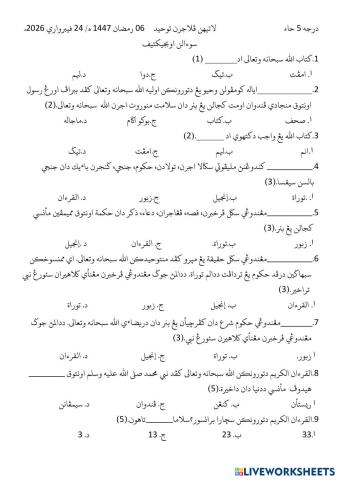 درجه 5 حاء لاتيهن ڤلاجرن توحيد 06 رمضان 1447 ه/ 24 فيبرواري 2026،
سوءالن اوبجيكتيف
1.كتاب الله سبحانه وتعالى اد________ (1)
ا. امڤت ب.تيݢ ج.دوا د.ليم
2.______________اياله كومڤولن وحيو يڠ دتورونكن اوليه الله سبحانه وتعالى كڤد ببراڤ اورڠ رسول
اونتوق منجادي ڤندوان اومت كجالن يڠ بنر دان سلامت منوروت اجرن الله سبحانه وتعالى.(2)
ا. صحف ب.كتاب ج.بوكو اݢام د.ماجاله
3.كتاب الله يڠ واجب دكتهوي اد________.(2)
ا.انم ب.ليم ج.امڤت د.تيݢ
4.____________ كندوڠنن مليڤوتي سݢالا اجرن، تولادن، حكوم، جنجي، كنجرن باءيك دان جنجي
بالسن سيقسا.(3)
ا. .توراة ب.إنجيل ج.زبور د. القرءان
5.____________مڠندوڠي سݢل ڤرخبرن، قصه، ڤڠاجران، دعاء، ذكر دان حكمة اونتوق ممبيمبڠ مأنسي
كجالن يڠ بنر.(3)
ا. زبور ب.توراة ج. القرءان د .إنجيل
6.____________مڠندوڠي سݢل حقيقة يڠ مڽرو كڤد منتوحيدكن الله سبحانه وتعالى. اي ممنسوخكن
سبهاݢين درڤد حكوم يڠ ترداڤت ددالم توراة. ددالمن جوݢ مڠندوڠي ڤرخبرن مڠنأي كلاهيرن ستورڠ نبي
تراخير.(3)
ا. القرءان ب. إنجيل ج. زبور د. توراة
7.________مڠندوڠي حكوم شرع دان كڤرچيأن يڠ بنر دان دريضاءي الله سبحانه وتعالى. ددالمن جوݢ
مڠندوڠي ڤرخبرن مڠنأي كلاهيرن ستورڠ نبي.(3)
ا زبور. ب. توراة ج. إنجيل د. القرءان
8.القرءان الكريم دتورونكن الله سبحانه وتعالى كڤد نبي محمد صلى الله عليه وسلم اونتوق ________
هيدوڤ مأنسي ددنيا دان داخيرة.(5)
ا ريستأن ب. كنڠن ج. ڤندوان د. سيمڤانن
9.القرءان الكريم دتورونكن سچارا برانسور٢سلاما______تاهون.(5)
ا.33 ب. 23 ج. 13 د. 3
LIVEWORKSHEETS